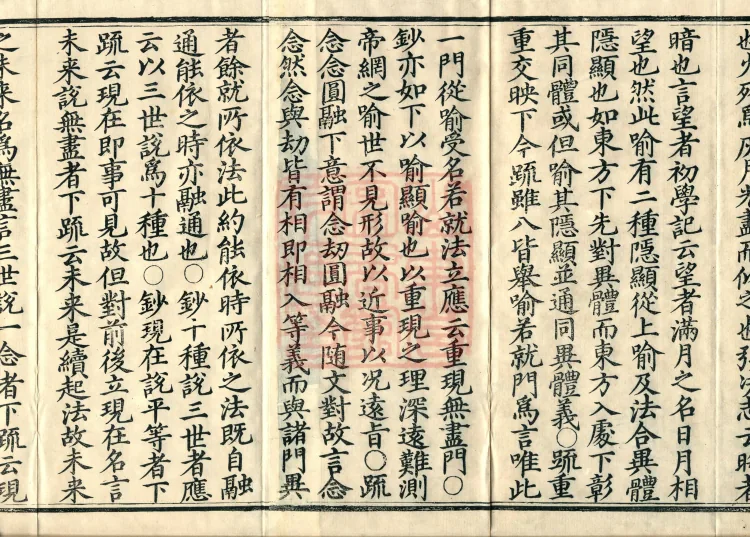 也火死爲灰月光盡而似之也
暗也言望者初學記云望者滿月之名日月相
望也然此喻有二種隱顯從上喻及法合異體
隱顯也如東方下先對異體而東方入處下彰
其同體或但喻其隱顯並通同異體義○䟽重
重交映下今䟽雖八皆舉喻若就門爲言唯此
一門從喻受名若就法立應云重現無盡門○
鈔亦如下以喻顯喻也以重現之理深遠難測
帝網之喻世不見形故以近事以况遠旨○䟽
念念圓融下意謂念刧圓融今随文對故言念
念然念與劫皆有相即相入等義而與諸門異
者餘就所依法此約能依時所依之法既自融
通能依之時亦融通也○鈔十種說三世者應
云以三世說爲十種也○鈔現在說平等者下
䟽云現在即事可見故但對前後立現在名言
未来說無盡者下䟽云未来是續起法故未来
之未来名爲無盡言三世說一念者下䟽云現